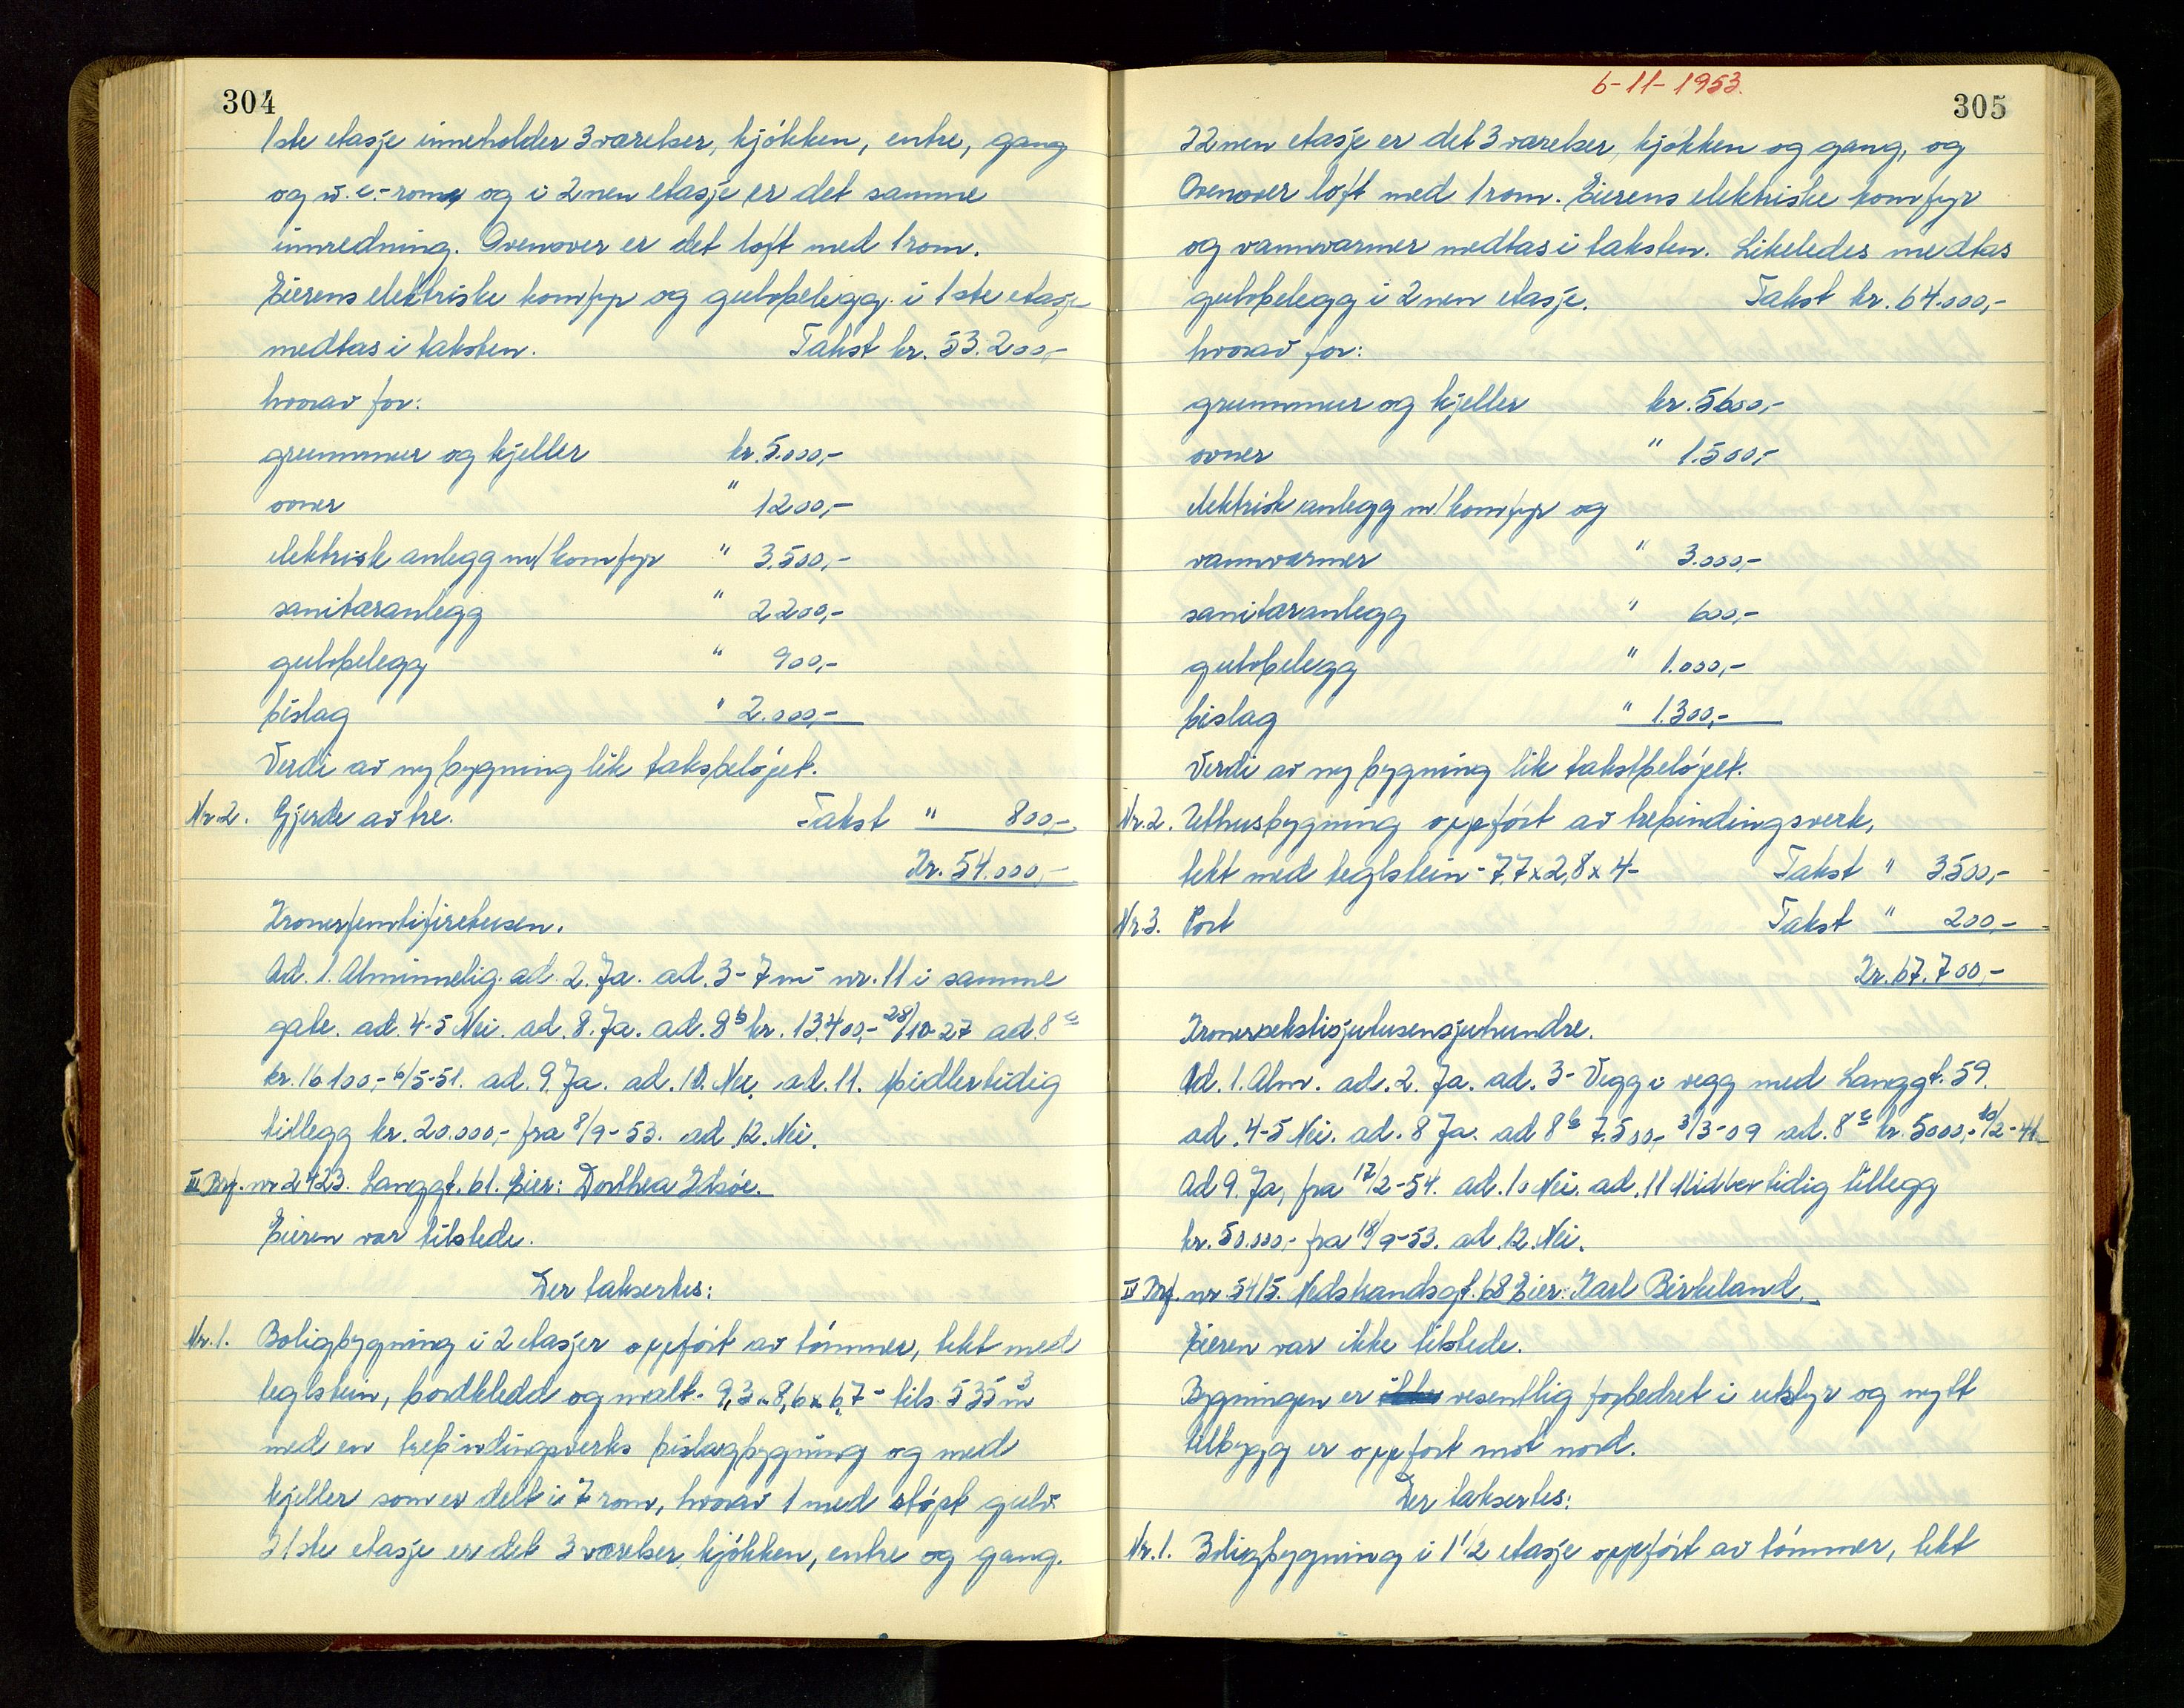 304
1ste etasje inneholder 3 værelser, kjøkken, entre, gang
og w.c.-rom og i 2nen etasje er det samme
innredning. Ovenover er det loft med 1 rom.
Eierens elektriske komfyr og gulvbelegg i 1ste etasje
medtas i taksten. Takst kr. 53.200,-
hvorav for:
grunnmur og kjeller kr. 5.000,-
ovner " 1200,-
elektrisk anlegg m/komfyr " 3.500,-
sanitæranlegg " 2200,-
gulvbelegg " 900,-
bislag " 2.000,-
Verdi av ny bygning lik taksbeløpet.
Nr. 2. Gjerde av tre. Takst " 800,-
Kr. 54.000,-
Kronerfemtifiretusen.
Ad. 1. Alminnelig. ad. 2. Ja. ad. 3 - 7 m - nr. 11 i samme
gate. ad. 4-5 Nei. ad. 8. Ja. ad. 8b kr. 13400,- 28/10-27 ad. 8c
kr. 16100,- 6/5-51. ad. 9. Ja. ad. 10. Nei. ad. 11. Midlertidig
tillegg kr. 20.000,- fra 8/9-53. ad. 12. Nei.
III Brf. nr 2423. Langgt. 61. Eier: Dorthea
Eieren var tilstede.
Der taksertes:
Nr. 1. Boligbygning i 2 etasjer oppført av tømmer, tekt med
teglstein, bordkledd og malt - 9,3 x 8,6 x 6,7 - tils. 535 m3
med en trebindingsverks bislagbygning og med
kjeller som er delt i 7 rom, hvorav 1 med støpt gulv.
I 1ste etasje er det 3 værelser, kjøkken, entre og gang.
6-11-1953.
305
I 2nen etasje er det 3 værelser, kjøkken og gang, og
Ovenover loft med 1 rom. Eierens elektriske komfyr
og vannvarmer medtas i taksten. Likeledes medtas
gulvbelegg i 2nen etasje. Takst kr. 64.000,-
hvorav for:
grunnmur og kjeller kr. 5600,-
ovner " 1.500,-
elektrisk anlegg m/komfyr og
vannvarmer " 3.000,-
sanitæranlegg " 600,-
gulvbelegg " 1.000,-
bislag " 1.300,-
Verdi av ny bygning lik takstbeløpet.
Nr. 2. Uthusbygning oppført av trebindingsverk,
tekt med teglstein - 7,7 x 2,8 x 4 - Takst " 3.500,-
Nr. 3. Port Takst " 200,-
Kr. 67.700,-
Kronersekstisjutusensjuhundre.
Ad. 1. Alm. ad. 2. Ja. ad. 3 - Vegg i vegg med Langgt. 59.
ad. 4-5 Nei. ad. 8 Ja. ad 8b 7.500,- 3/3-09 ad. 8c kr. 5000,- 10/2-41
Ad 9. Ja, fra 17/2-54. ad. 10 Nei. ad. 11 Midlertidig tillegg
kr. 50.000,- fra 18/9-53. ad. 12. Nei.
IV Brf. nr 5415. Nedstrandsgt. 68 Eier: Karl Birkeland.
Eieren var ikke tilstede.
Bygningen er ikke vesentlig forbedret i utstyr og nytt
tilbygg er oppført mot nord.
Der taksertes:
Nr. 1. Boligbygning i 1 1/2 etasje oppført av tømmer, tekt